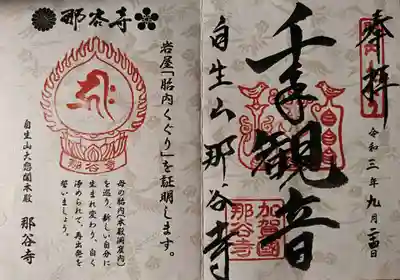 奉拝
令和三年九月二十四日
千手観音
自生山那谷寺
加賀國
那谷寺
那谷寺
岩屋「胎内くぐり」を証明します。
母の胎内(本殿洞窟内)
を巡り、新しい自分に
生まれ変わり、白く
浄められて、再出発を
誓いましょう。
自生山大悲閣本殿 那谷寺
那谷寺